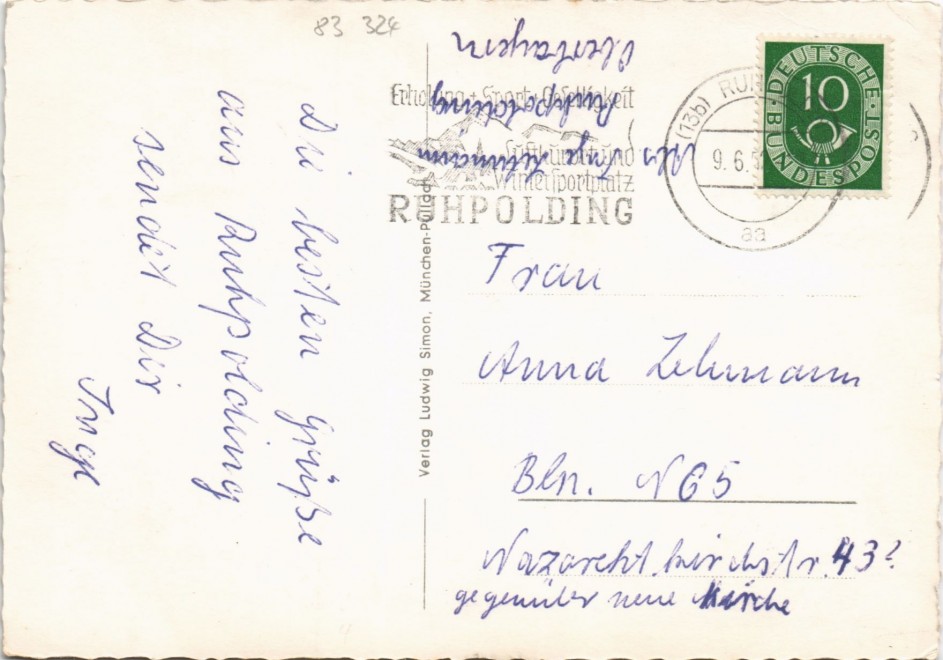 83 324
Die besten Grüße
aus Ruhpolding
sendet Dir
Inge
Verlag Ludwig Simon, München-Pullach
Abs Inge Lehmann
Ruhpolding
Oberbayern
Erholung + Sport + Geselligkeit
Luftkurort und
Wintersportplatz
RUHPOLDING
(13b) RUH
9.6.5
aa
DEUTSCHE
BUNDESPOST
10
Frau
Anna Lehmann
Bln. N65
Nazarethkirchstr. 43?
gegenüber neue Kirche